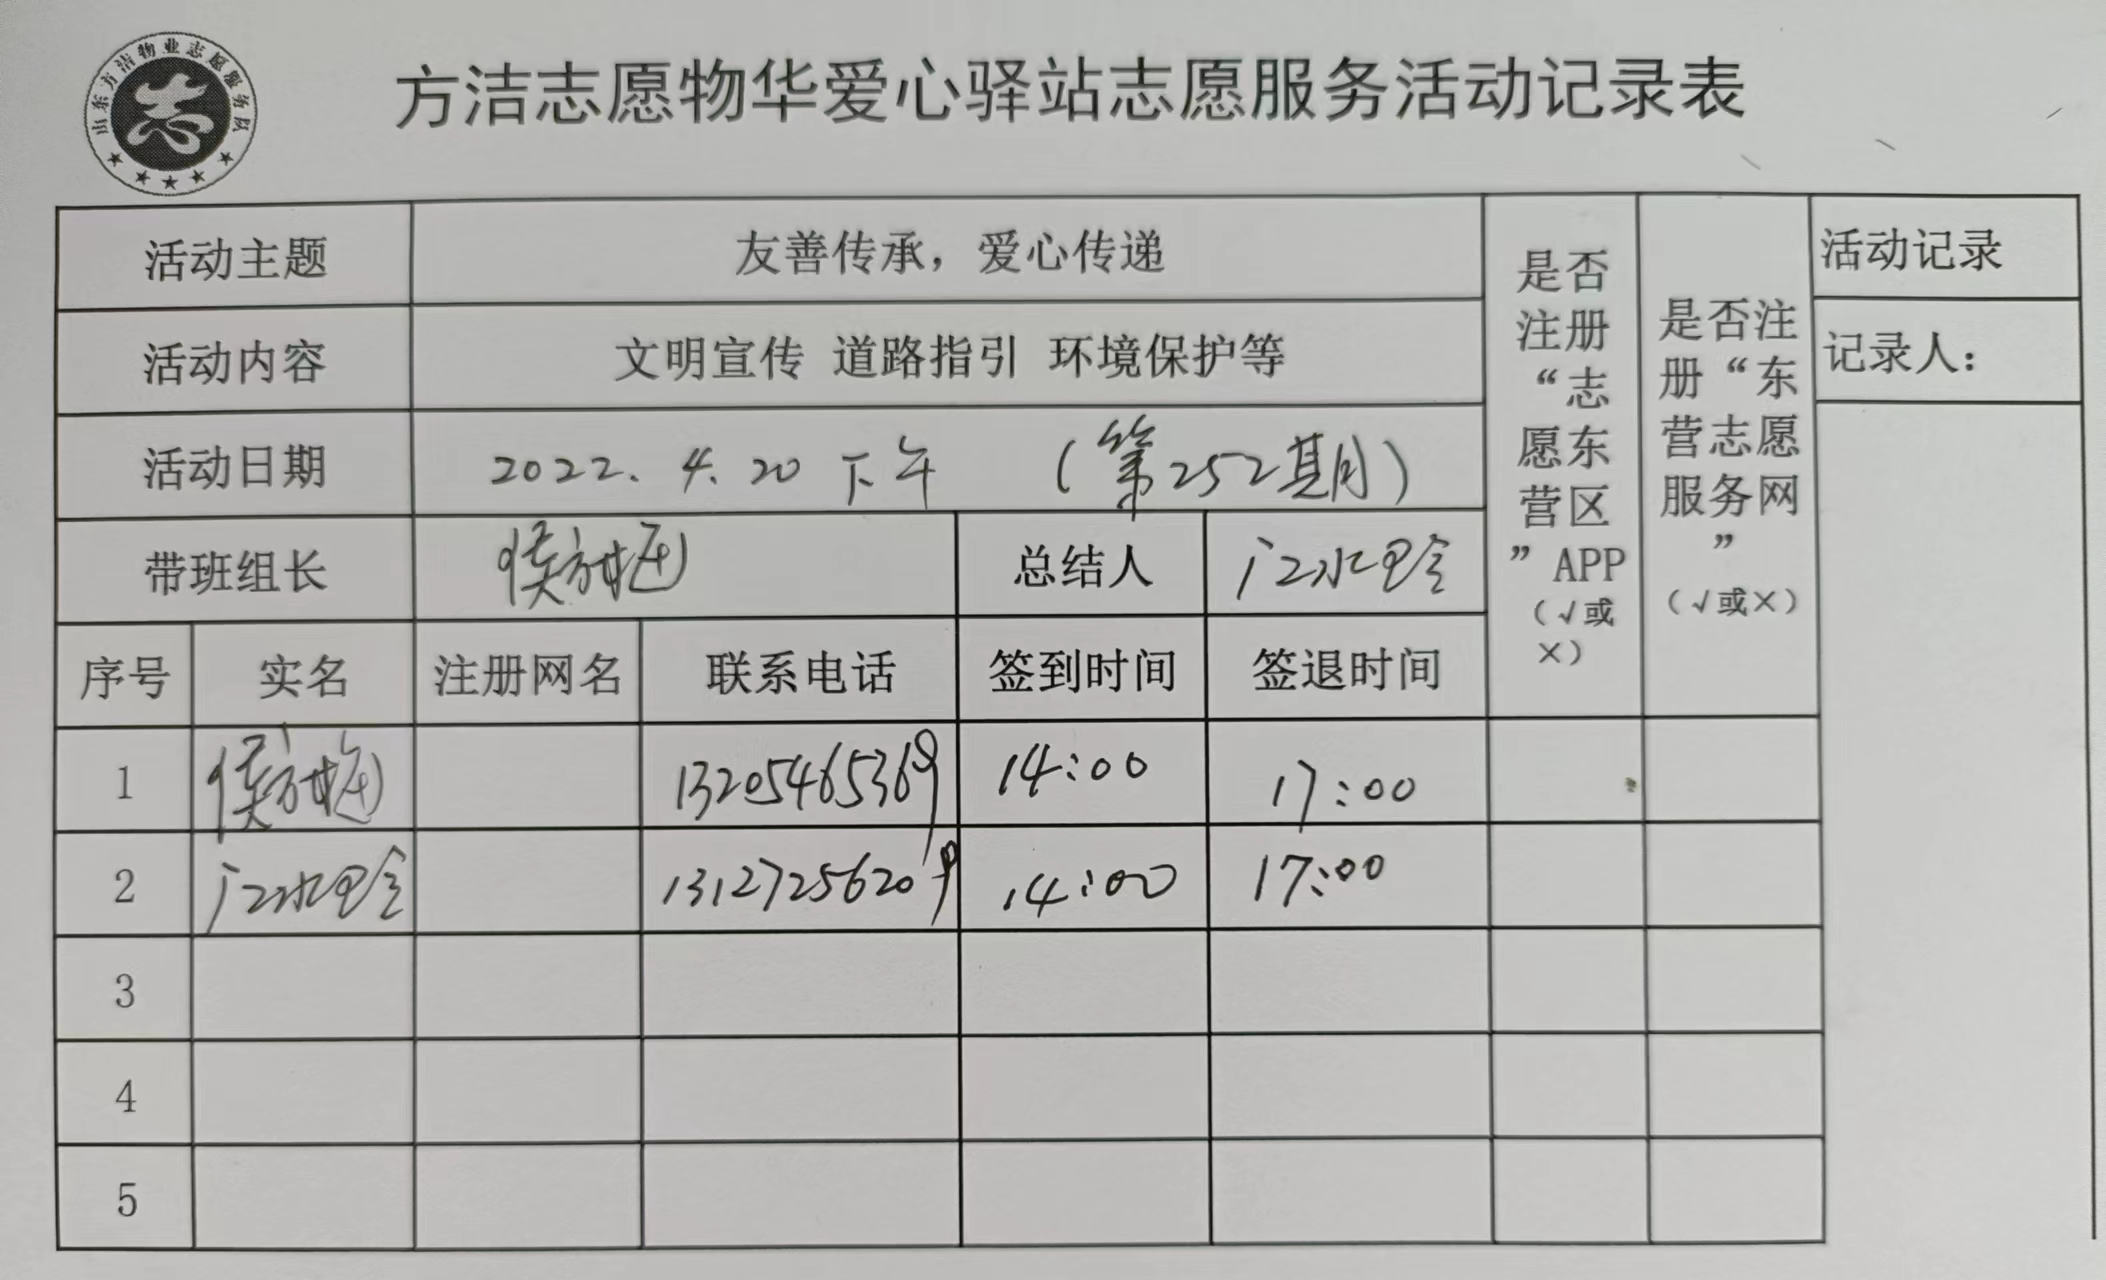 山东方洁物业志愿服务队
方洁志愿物华爱心驿站志愿服务活动记录表
活动主题 友善传承，爱心传递
活动内容 文明宣传 道路指引 环境保护等
活动日期 2022.4.20 下午 （第252期）
带班组长 总结人
是否注册“志愿东营区”APP（√或×）
是否注册“东营志愿服务网”（√或×）
活动记录
记录人：
序号 实名 注册网名 联系电话 签到时间 签退时间
1 13205465369 14:00 17:00
2 13127256209 14:00 17:00
3
4
5